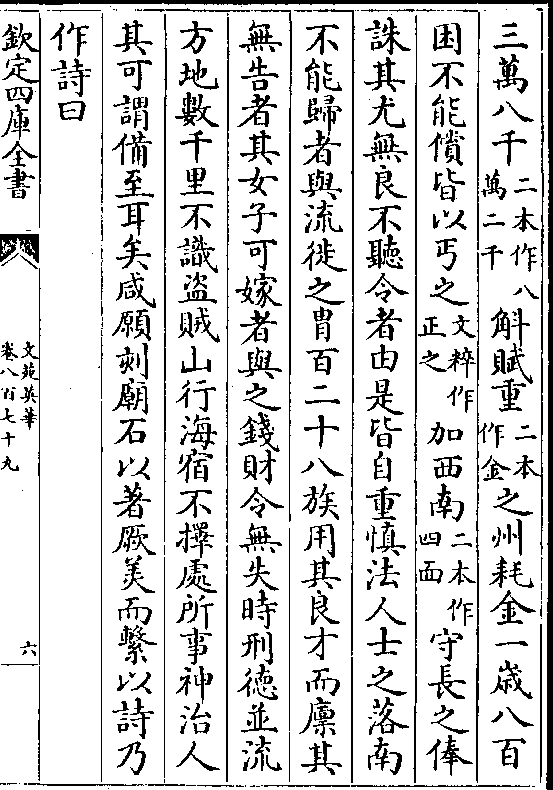 三萬八千二本作八萬二千斛賦重二本作金之州耗金一歲八百
困不能償皆以丐之文粹作正之加西南二本作四面守長之俸
誅其尤無良不聽令者由是皆自重慎法人士之落南
不能歸者與流徙之胄百二十八族用其良才而廩其
無告者其女子可嫁者與之錢財令無失時刑德並流
方地數千里不識盜賊山行海宿不擇處所事神治人
其可謂備至耳矣咸願刻廟石以著厥美而繫以詩乃
作詩曰
欽定四庫全書
文苑英華
卷八百七十九
六